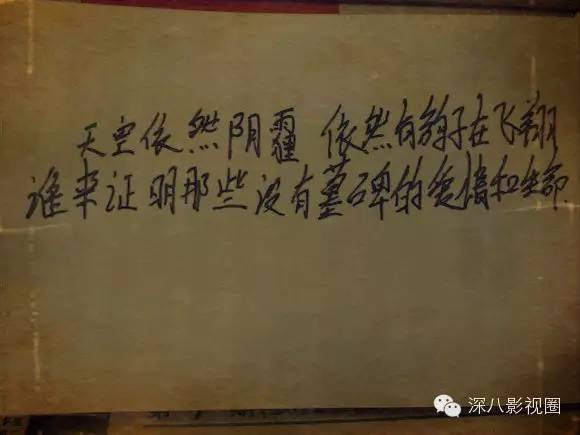 天空依然阴霾 依然有鸽子在飞翔
谁来证明那些没有墓碑的爱情和生命
深八影视圈